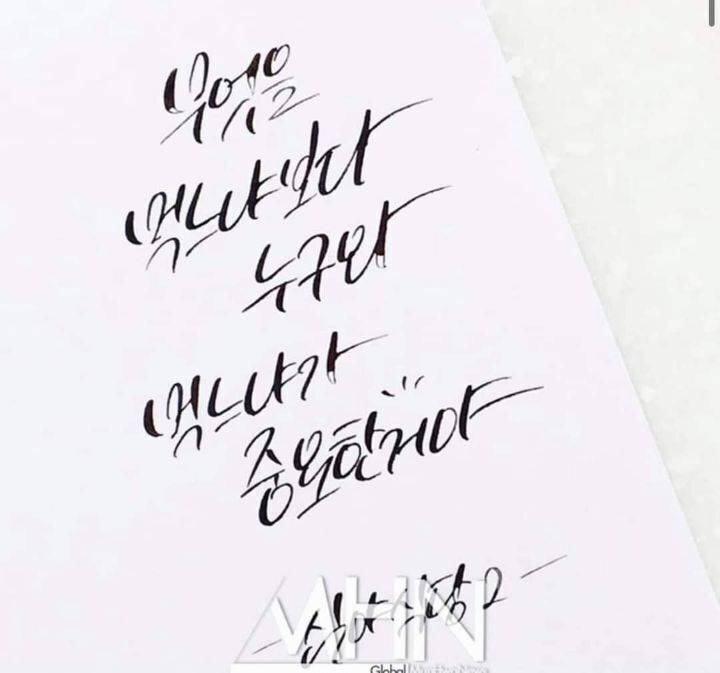 무엇을
먹느냐보다
누구와
먹느냐가
중요한거야
- 심야식당2 -
MHN
Global MunHwaNews